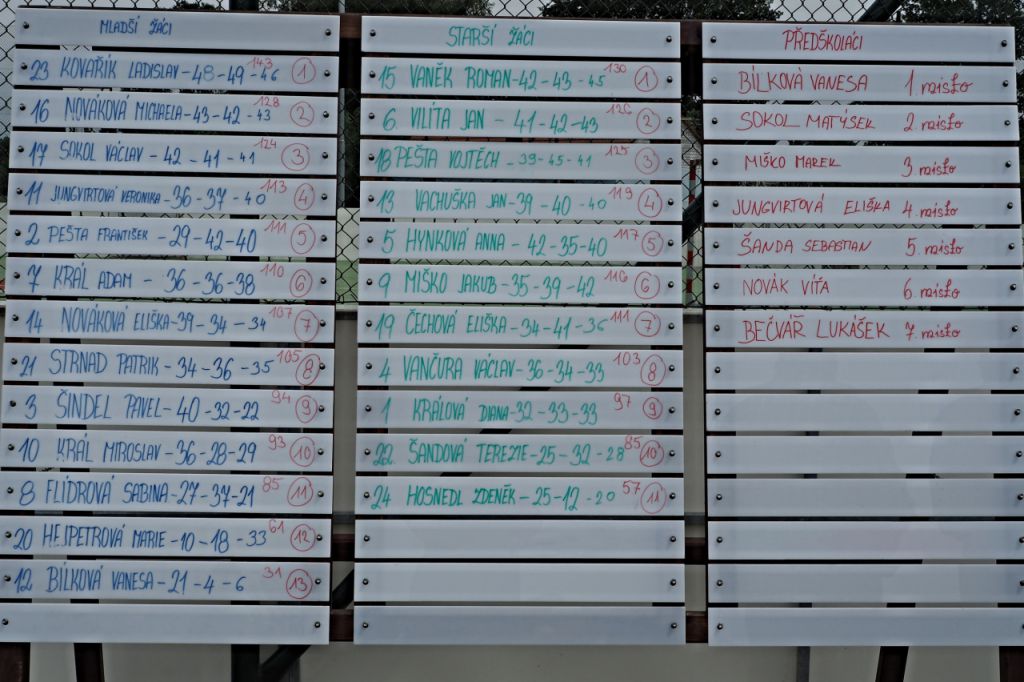 MLADŠÍ ŽÁCI
23 KOVAŘÍK LADISLAV-48-49-46 143 1
16 NOVÁKOVÁ MICHAELA-43-42-43 128 2
17 SOKOL VÁCLAV-42-41-41 124 3
11 JUNGVIRTOVÁ VERONIKA-36-37-40 113 4
2 PEŠTA FRANTIŠEK-29-42-40 111 5
7 KRÁL ADAM-36-36-38 110 6
14 NOVÁKOVÁ ELIŠKA-39-34-34 107 7
21 STRNAD PATRIK-34-36-35 105 8
3 ŠINDEL PAVEL-40-32-22 94 9
10 KRÁL MIROSLAV-36-28-29 93 10
8 FLÍDROVÁ SABINA-27-37-21 85 11
20 NESPETROVÁ MARIE-10-18-33 61 12
12 BÍLKOVÁ VANESA-21-4-6 31 13
STARŠÍ ŽÁCI
15 VANĚK ROMAN-42-43-45 130 1
6. VILÍTA JAN-41-42-43 126 2
18 PEŠTA VOJTĚCH-39-45-41 125 3
13 VACHUŠKA JAN-39-40-40 119 4
5 HYNKOVÁ ANNA-42-35-40 117 5
9 MIŠKO JAKUB-35-39-42 116 6
19 ČECHOVÁ ELIŠKA-34-41-36 111 7
4 VANČURA VÁCLAV-36-34-33 103 8
1 KRÁLOVÁ DIANA-32-33-33 97 9
22. ŠANDOVÁ TEREZIE-25-32-28 85 10
24 HOSNEDL ZDENĚK-25-12-20 57 11
PŘEDŠKOLÁCI
BÍLKOVÁ VANESA 1. místo
SOKOL MATÝSEK 2. místo
MIŠKO MAREK 3. místo
JUNGVIRTOVÁ ELIŠKA 4. místo
ŠANDA SEBASTIAN 5. místo
NOVÁK VÍŤA 6. místo
BEČVÁŘ LUKÁŠEK 7. místo